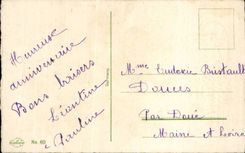 Heureux
anniversaire
Bons baisers
Léontine
Pauline
Mme Eudoxie Bistault
Douces
Par Doué
Maine et Loire
No. 60